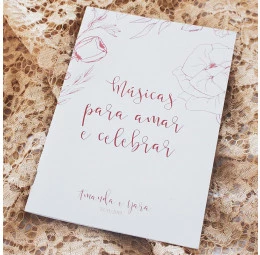 Músicas
para amar
e celebrar
Amanda e Yara